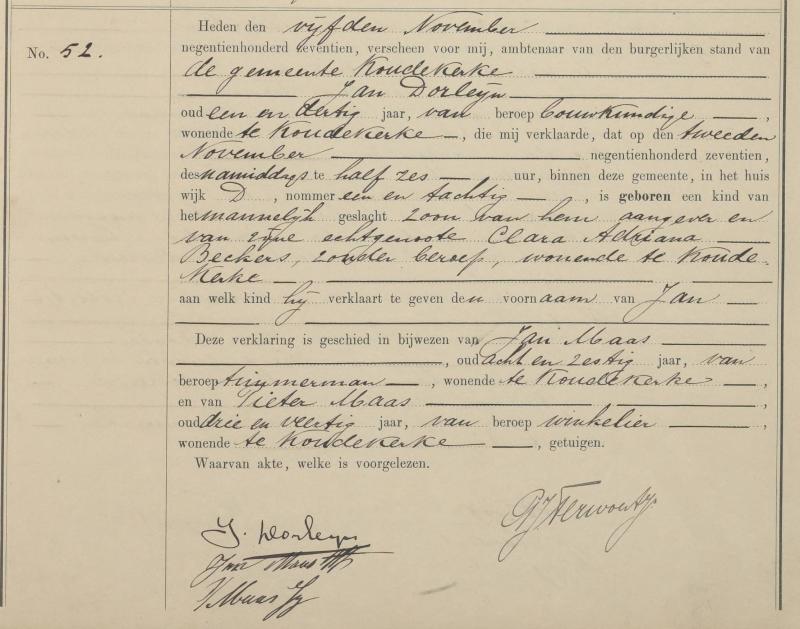 No. 52.
Heden den vijfden November
negentienhonderd zeventien, verscheen voor mij, ambtenaar van den burgerlijken stand van
de gemeente Koudekerke
Jan Dorleijn
oud een en dertig jaar, van beroep bouwkundige,
wonende te Koudekerke, die mij verklaarde, dat op den tweeden
November negentienhonderd zeventien,
des namiddags te half zes uur, binnen deze gemeente, in het huis
wijk D, nommer een en tachtig, is geboren een kind van
het mannelijk geslacht zoon van hem aangever en
van zijne echtgenoote Clara Adriana
Beckers, zonder beroep, wonende te Koude-
kerke
aan welk kind hij verklaart te geven den voornaam van Jan
Deze verklaring is geschied in bijwezen van Jan Maas
, oud acht en zestig jaar, van
beroep timmerman, wonende te Koudekerke,
en van Pieter Maas,
oud drie en veertig jaar, van beroep winkelier,
wonende te Koudekerke, getuigen.
Waarvan akte, welke is voorgelezen.
J. Dorleijn
Jan Maas
P Maas Jz